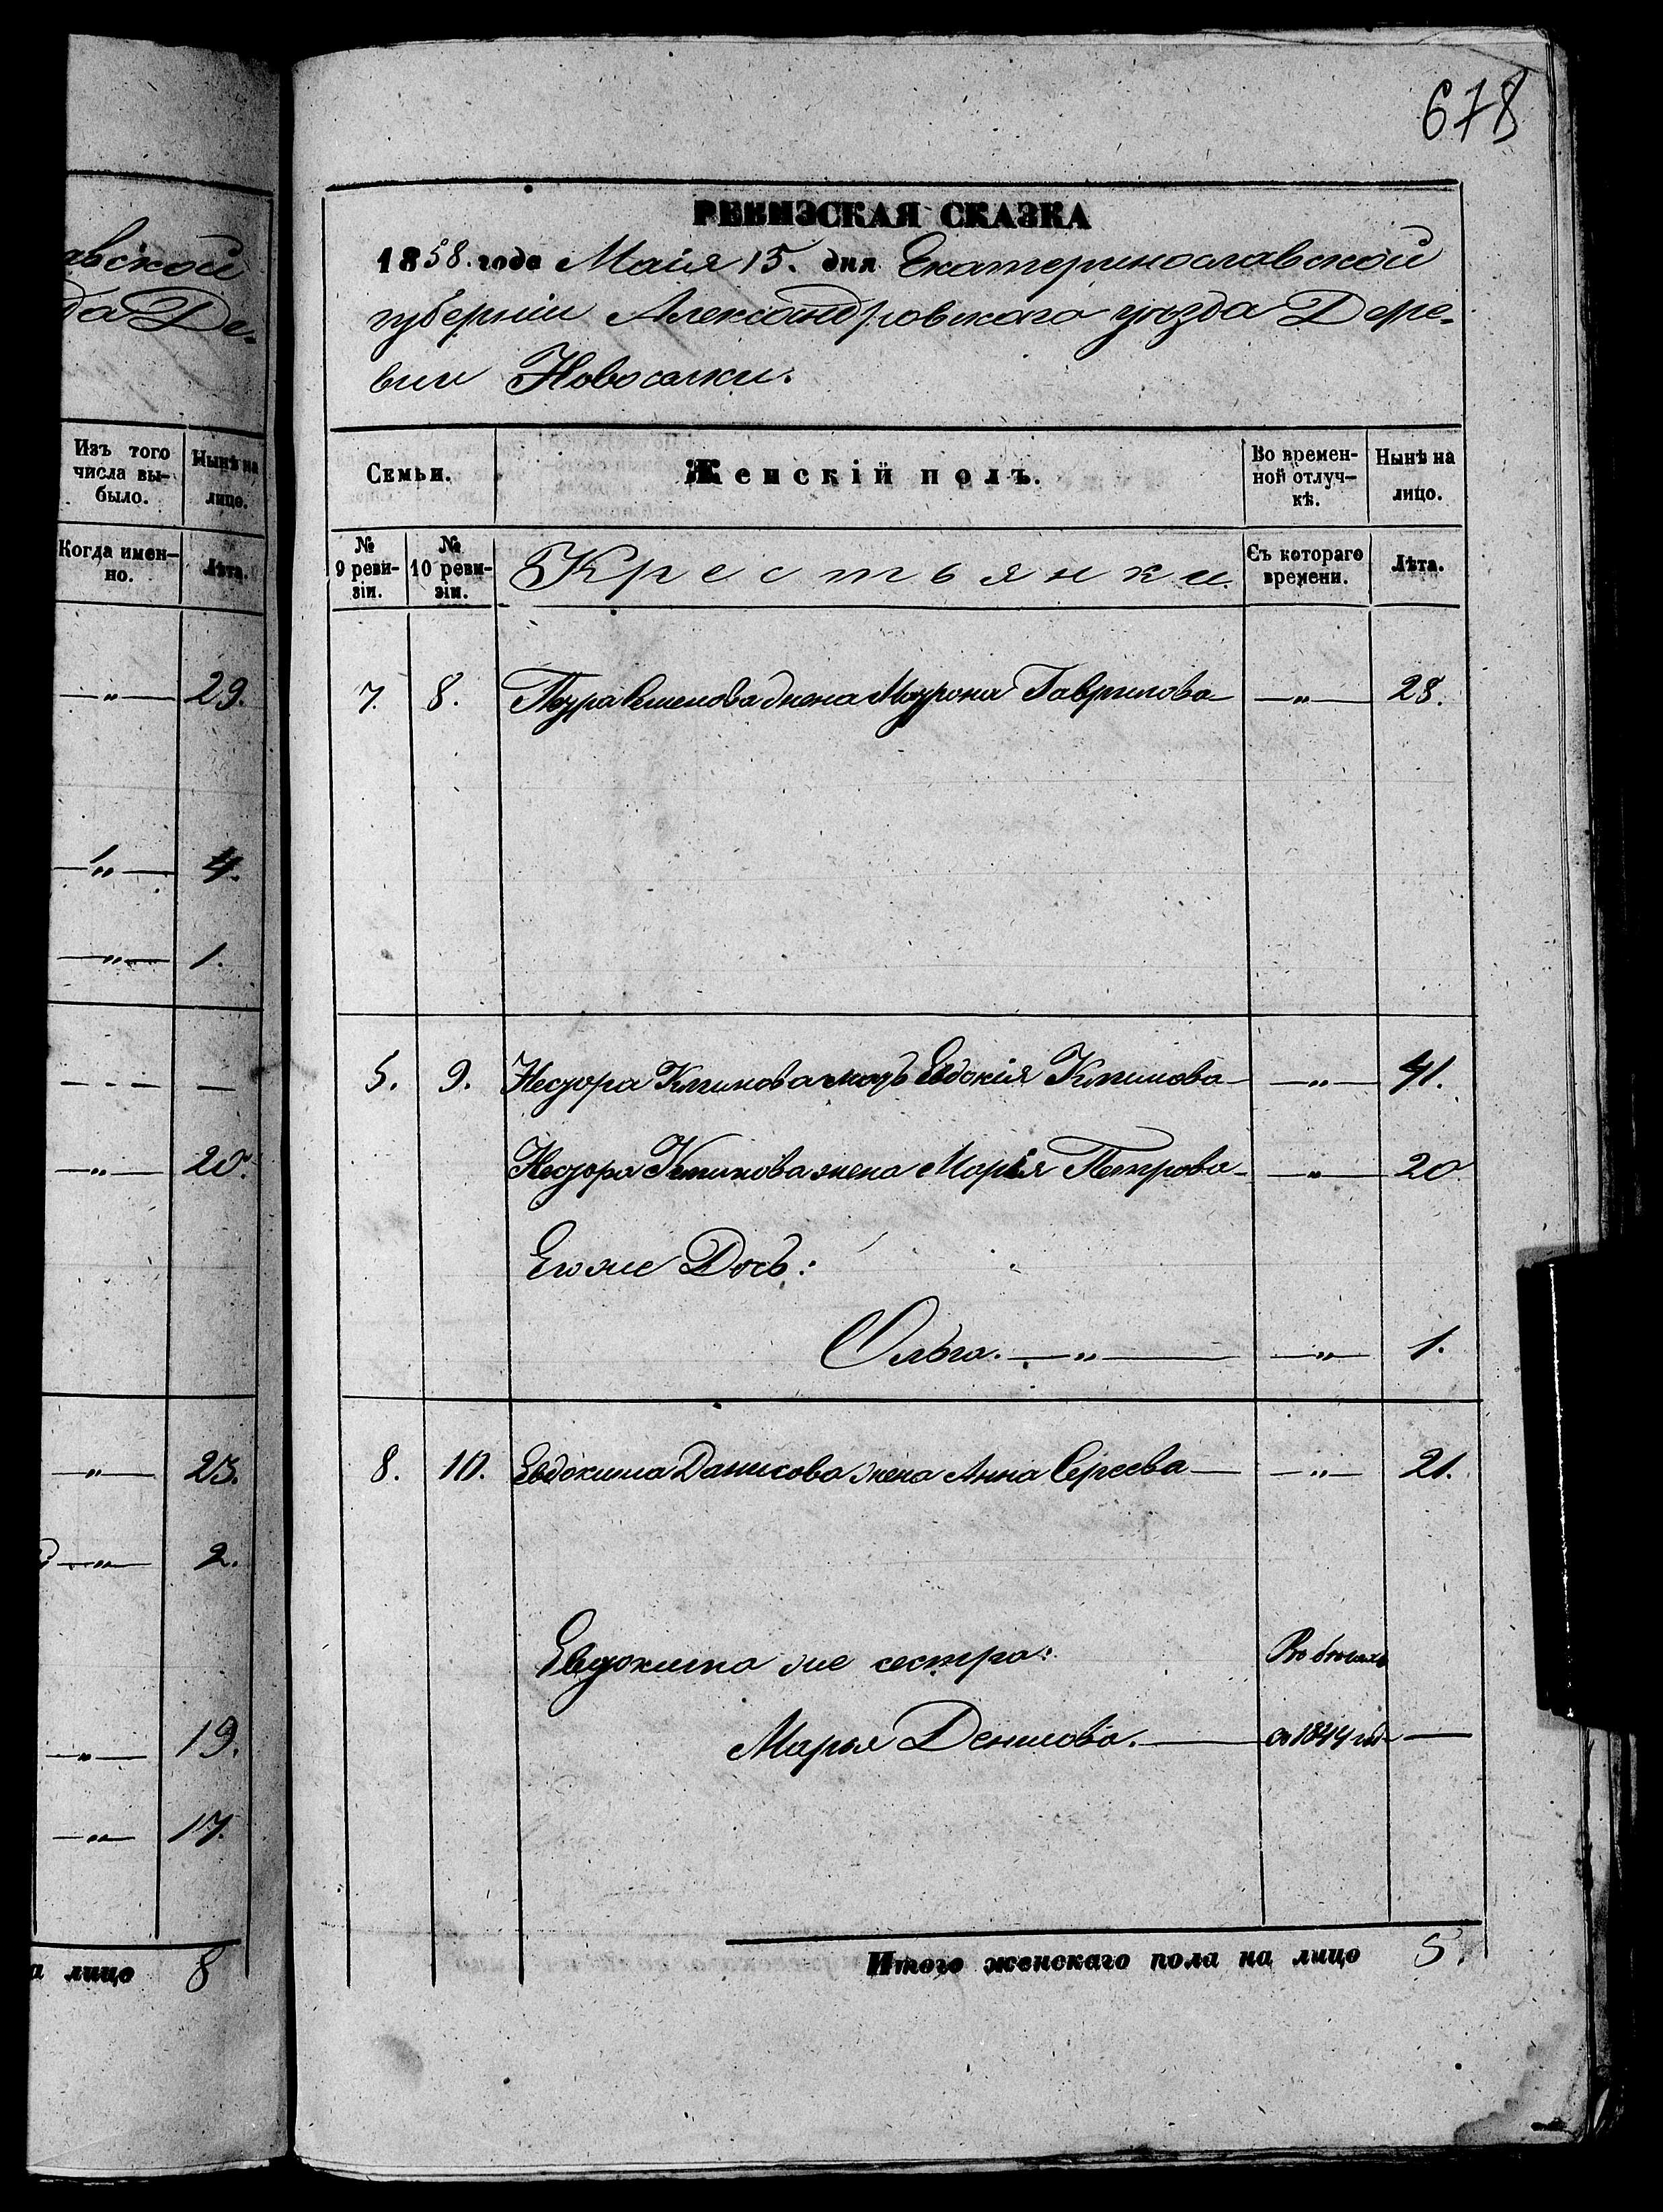 авской
да Де-
Изъ того
числа вы-
было.
Нынѣ на
лицо.
Когда имен-
но.
Лѣта.
— „ — 29.
— „ — 4.
— „ — 1.
— - - —
— „ — 20.
— „ — 23.
— „ — 2.
— „ — 19.
— „ — 17.
а лицо 8
678
РЕВИЗСКАЯ СКАЗКА
1858. года Маія 15. дня Екатеринославской
губерніи Александровскаго уѣзда Дере-
вни
Семьи.
Женскій полъ.
Во времен-
ной отлуч-
кѣ.
Нынѣ на
лицо.
№
9 реви-
зіи.
№
10 реви-
зіи.
Крестьянки.
Съ котораго
времени.
Лѣта.
7. 8. жена Гаврилова — „ — 28.
5. 9. Климова мать Евдокія Климова — „ — 41.
Климова жена Марья Петрова — „ — 20
Его же Дочь:
Ольга. — „ — — „ — 1.
8. 10. Евдокима Данилова жена Анна Сергеева — — „ — 21.
Евдокима же сестра: Въ бегахъ
Марья Данилова. — съ 1844 год —
Итого женскаго пола на лицо 5.